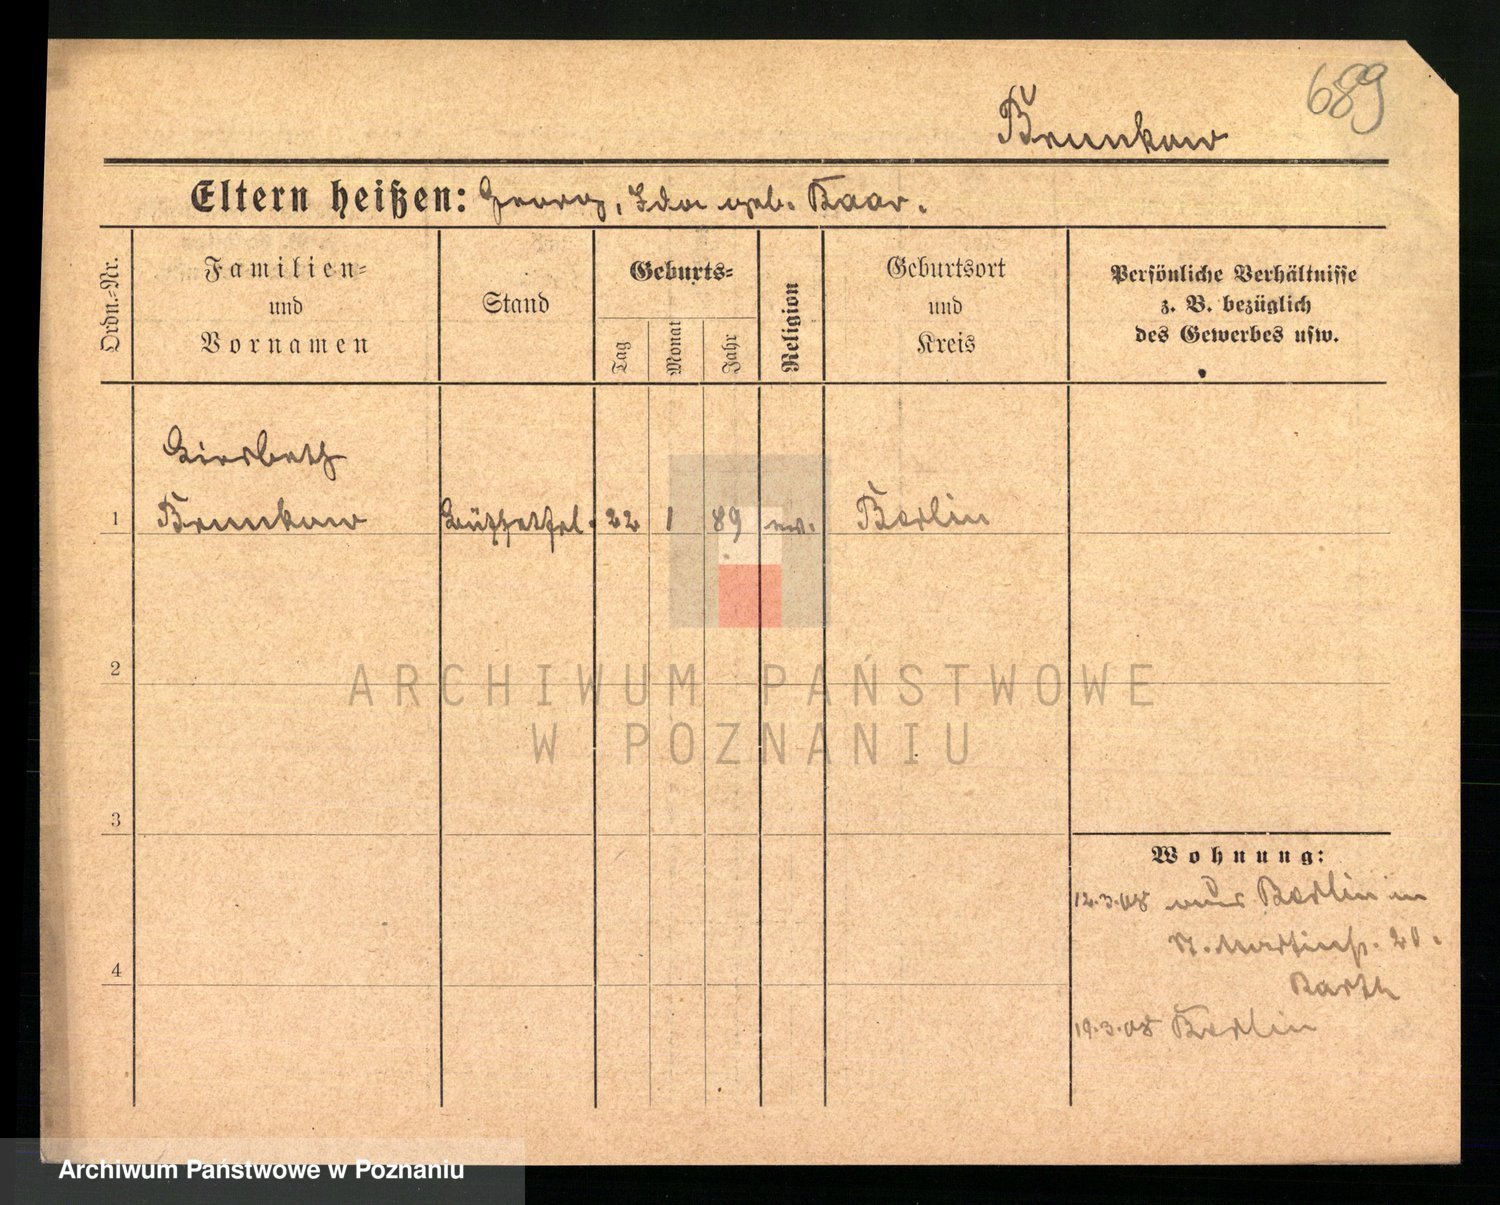 689
Brunkow
Eltern heißen: Georg, Ida geb. Baar.
Ordn.-Nr.
Familien-
und
Vornamen
Stand
Geburts-
Tag
Monat
Jahr
Religion
Geburtsort
und
Kreis
Persönliche Verhältnisse
z. B. bezüglich
des Gewerbes usw.
Liesbeth
1 Brunkow 22 1 89 ev. Berlin
2
ARCHIWUM PAŃSTWOWE
W POZNANIU
3
Wohnung:
12.3.08 aus Berlin in
St. Martinstr. 20.
Barth
4
19.3.08 Berlin
Archiwum Państwowe w Poznaniu